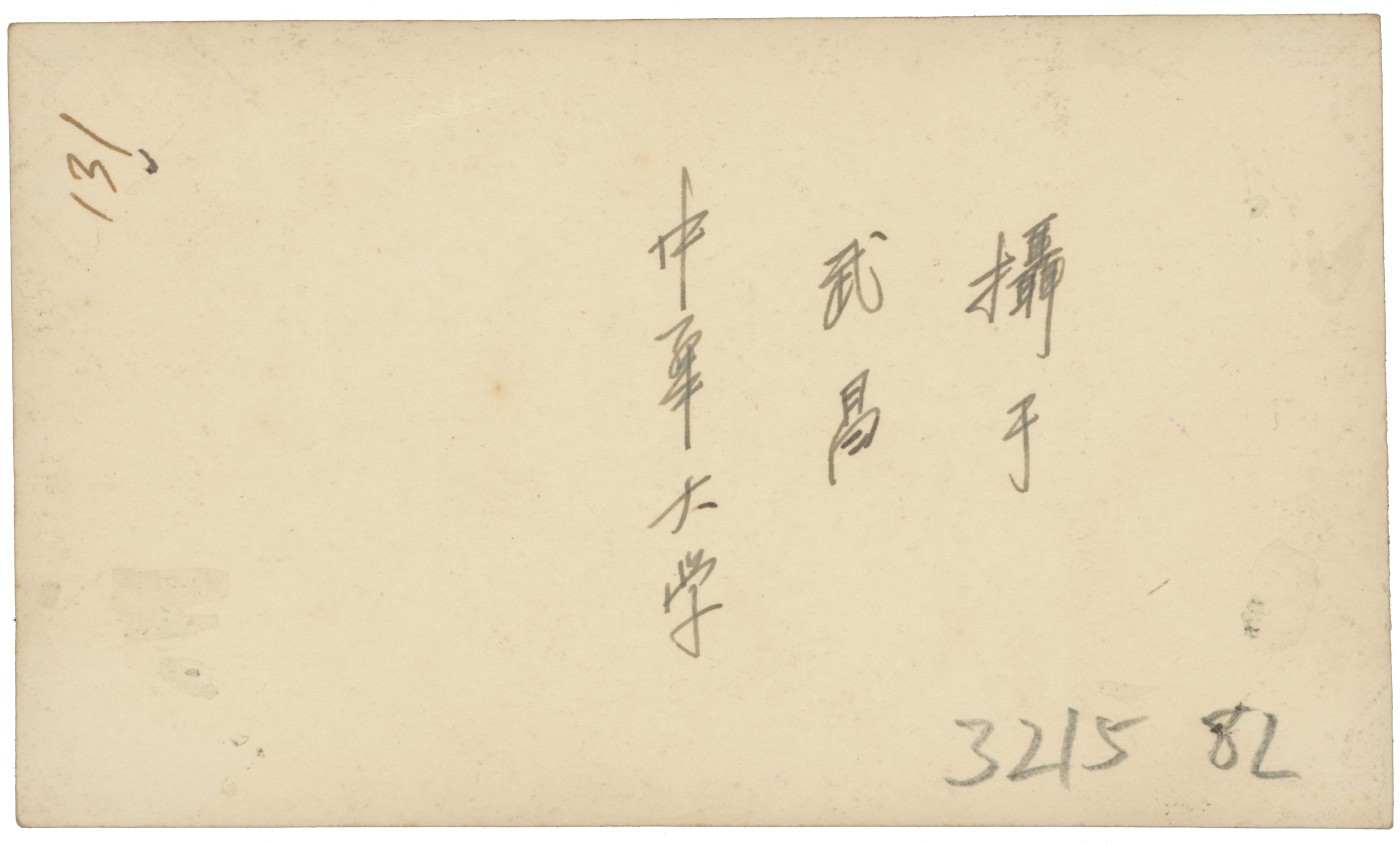 攝于
武昌
中华大学
131
3215 82